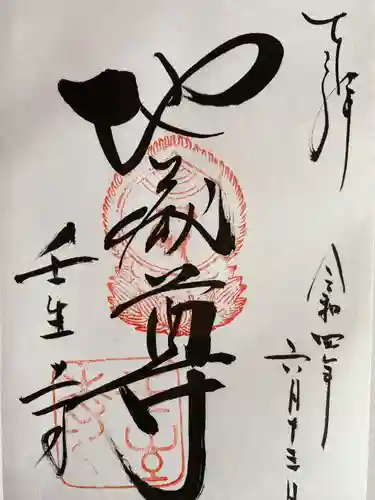 奉拝
令和四年
六月十三日
地蔵尊
壬生寺